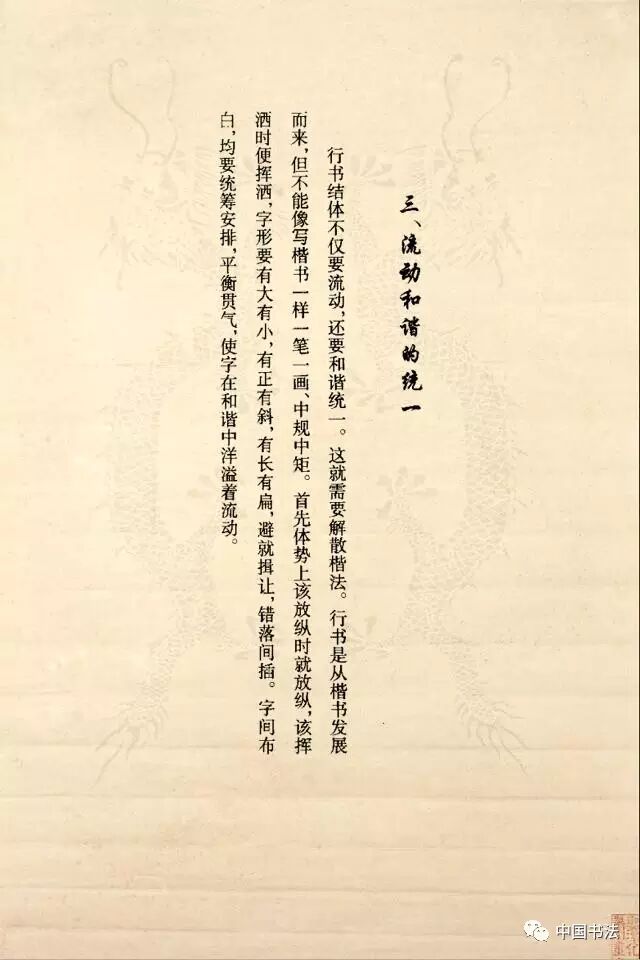 三、流动和谐的统一
行书结体不仅要流动，还要和谐统一。这就需要解散楷法。行书是从楷书发展
而来，但不能像写楷书一样一笔一画、中规中矩。首先体势上该放纵时就放纵，该挥
洒时便挥洒，字形要有大有小，有正有斜，有长有扁，避就揖让，错落间插。字间布
白，均要统筹安排，平衡贯气，使字在和谐中洋溢着流动。
中国书法